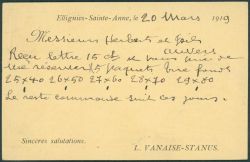 Ellignies-Sainte-Anne, le 20 Mars 1919
Messieurs Herbert et fils
Anvers
Reçu lettre 15 ct et vous prie de
me réserver 15 paquets
25x40 26x50 27x60 28x70 29x80
Le reste commande suit ces jours.
Sincères salutations.
L. VANAISE-STANUS.